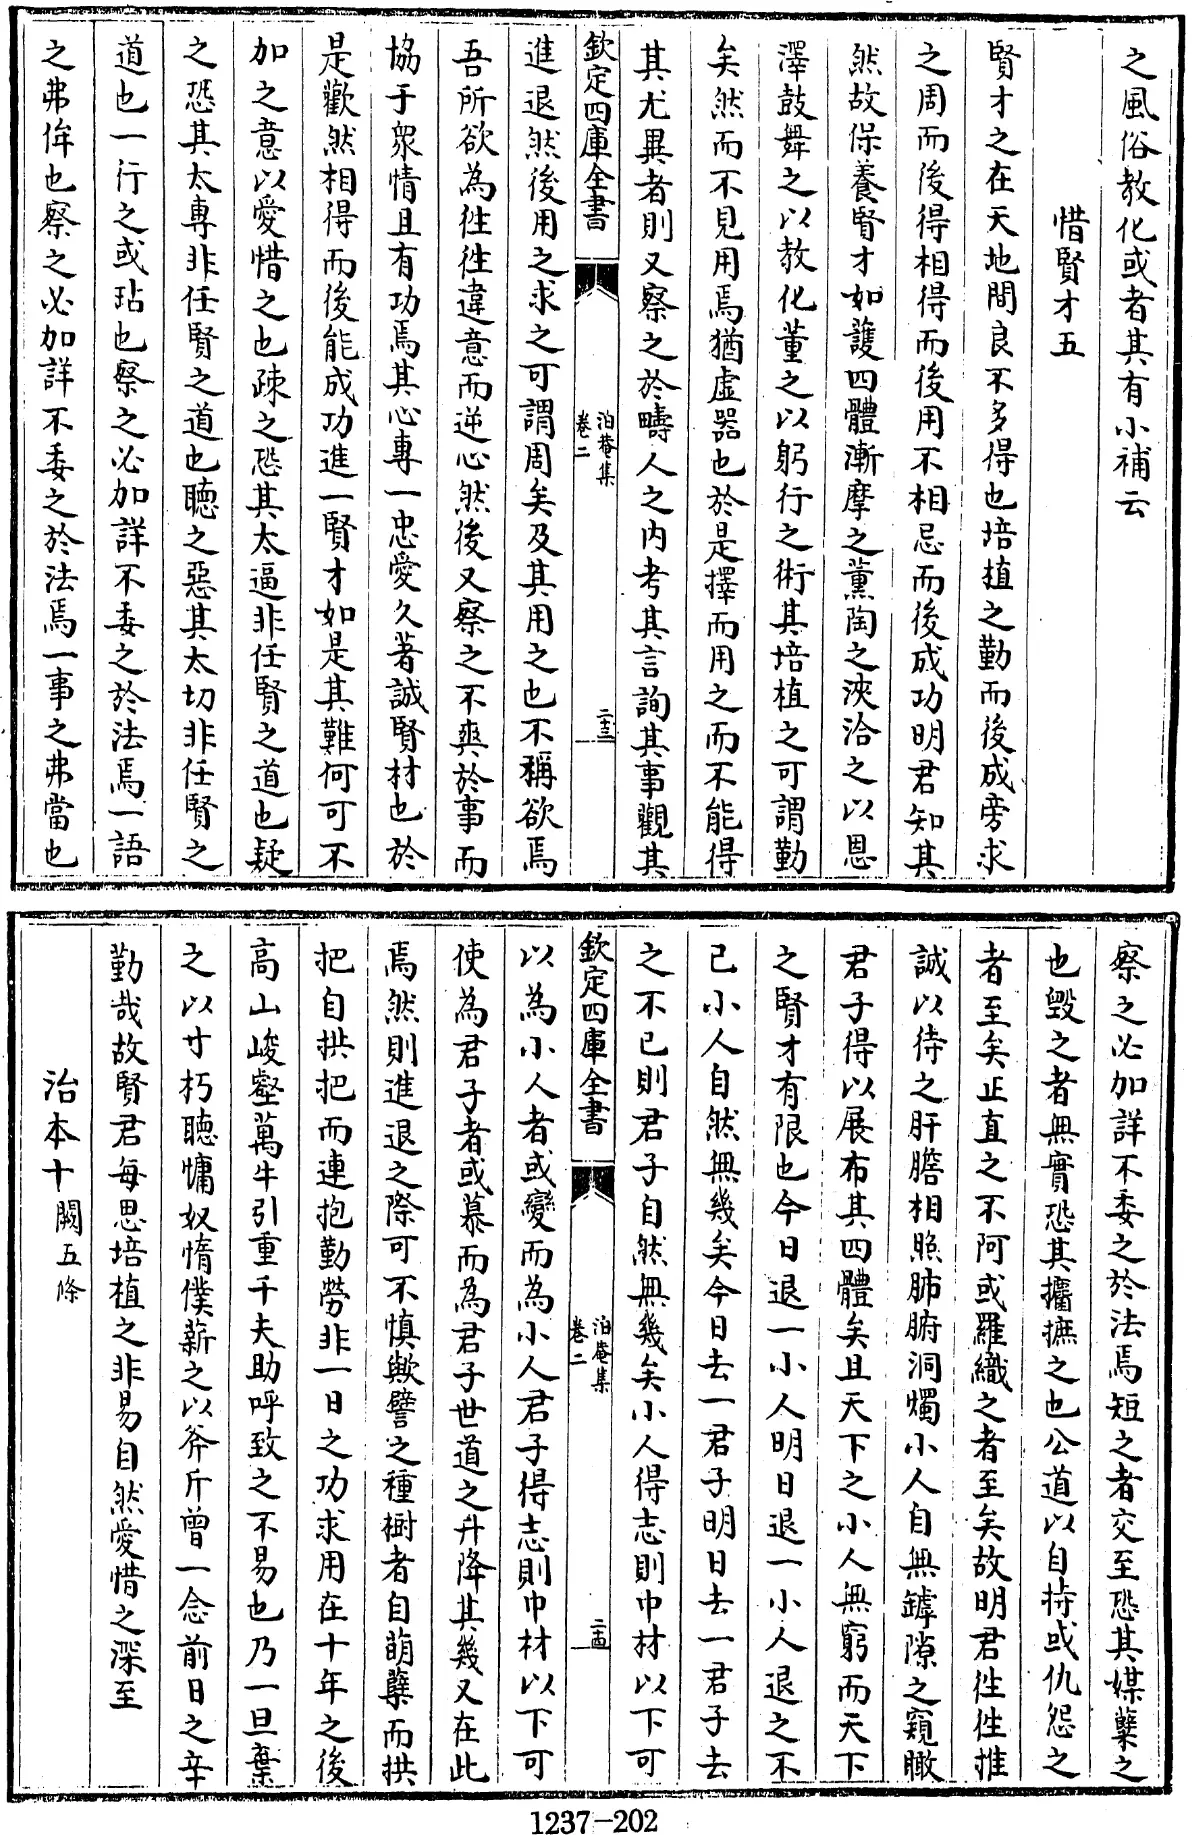 之風俗教化或者其有小補云
惜賢才五
賢才之在天地間良不多得也培植之勤而後成旁求
之周而後得相得而後用不相忌而後成功明君知其
然故保養賢才如護四體漸摩之薰陶之浹洽之以恩
澤鼓舞之以教化董之以躬行之術其培植之可謂勤
矣然而不見用焉猶虛器也於是擇而用之而不能得
其尤異者則又察之於疇人之内考其言詢其事觀其
欽定四庫全書
泊菴集
卷二
二十三
進退然後用之求之可謂周矣及其用之也不稱欲焉
吾所欲為往往違意而逆心然後又察之不爽於事而
協于衆情且有功焉其心專一忠愛久著誠賢材也於
是歡然相得而後能成功進一賢才如是其難何可不
加之意以愛惜之也疎之恐其太逼非任賢之道也疑
之恐其太專非任賢之道也聽之惡其太切非任賢之
道也一行之或玷也察之必加詳不委之於法焉一語
之弗侔也察之必加詳不委之於法焉一事之弗當也
察之必加詳不委之於法焉短之者交至恐其媒糵之
也毀之者無實恐其攟摭之也公道以自持或仇怨之
者至矣正直之不阿或羅織之者至矣故明君往往推
誠以待之肝膽相照肺腑洞燭小人自無罅隙之窺瞰
君子得以展布其四體矣且天下之小人無窮而天下
之賢才有限也今日退一小人明日退一小人退之不
已小人自然無幾矣今日去一君子明日去一君子去
之不已則君子自然無幾矣小人得志則中材以下可
欽定四庫全書
泊菴集
卷二
二十四
以為小人者或變而為小人君子得志則中材以下可
使為君子者或慕而為君子世道之升降其幾又在此
焉然則進退之際可不慎歟譬之種樹者自萌糵而拱
把自拱把而連抱勤勞非一日之功求用在十年之後
高山峻壑萬牛引重千夫助呼致之不易也乃一旦棄
之以寸朽聽慵奴惰僕薪之以斧斤曾一念前日之辛
勤哉故賢君每思培植之非易自然愛惜之深至
治本十闕五條
1237-202